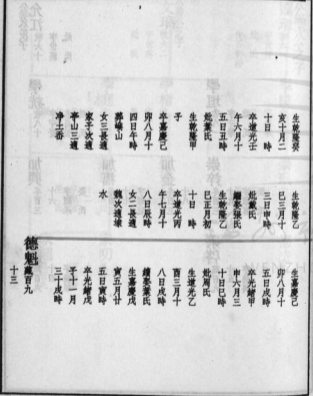 生乾隆癸
亥十月二
十日 時
卒道光壬
午六月十
五日丑時
妣葉氏
生乾隆甲
子
卒嘉慶己
卯八月十
四日午時
女三長適
家子次適
亭山三適
淨土岙
生乾隆乙
巳三月十
三日申時
妣戴氏
繼娶張氏
生乾隆乙
巳正月初
十日 時
卒道光丙
午七月十
八日辰時
女二長適
魏次適埭
水
生嘉慶己
卯八月十
五日戌時
卒光緒甲
申六月三
十日巳時
妣周氏
生道光乙
酉三月十
八日戌時
繼娶葉氏
生嘉慶戊
寅五月廿
五日寅時
卒光緒戊
子十一月
三十戌時
德魁 藏百九
十三